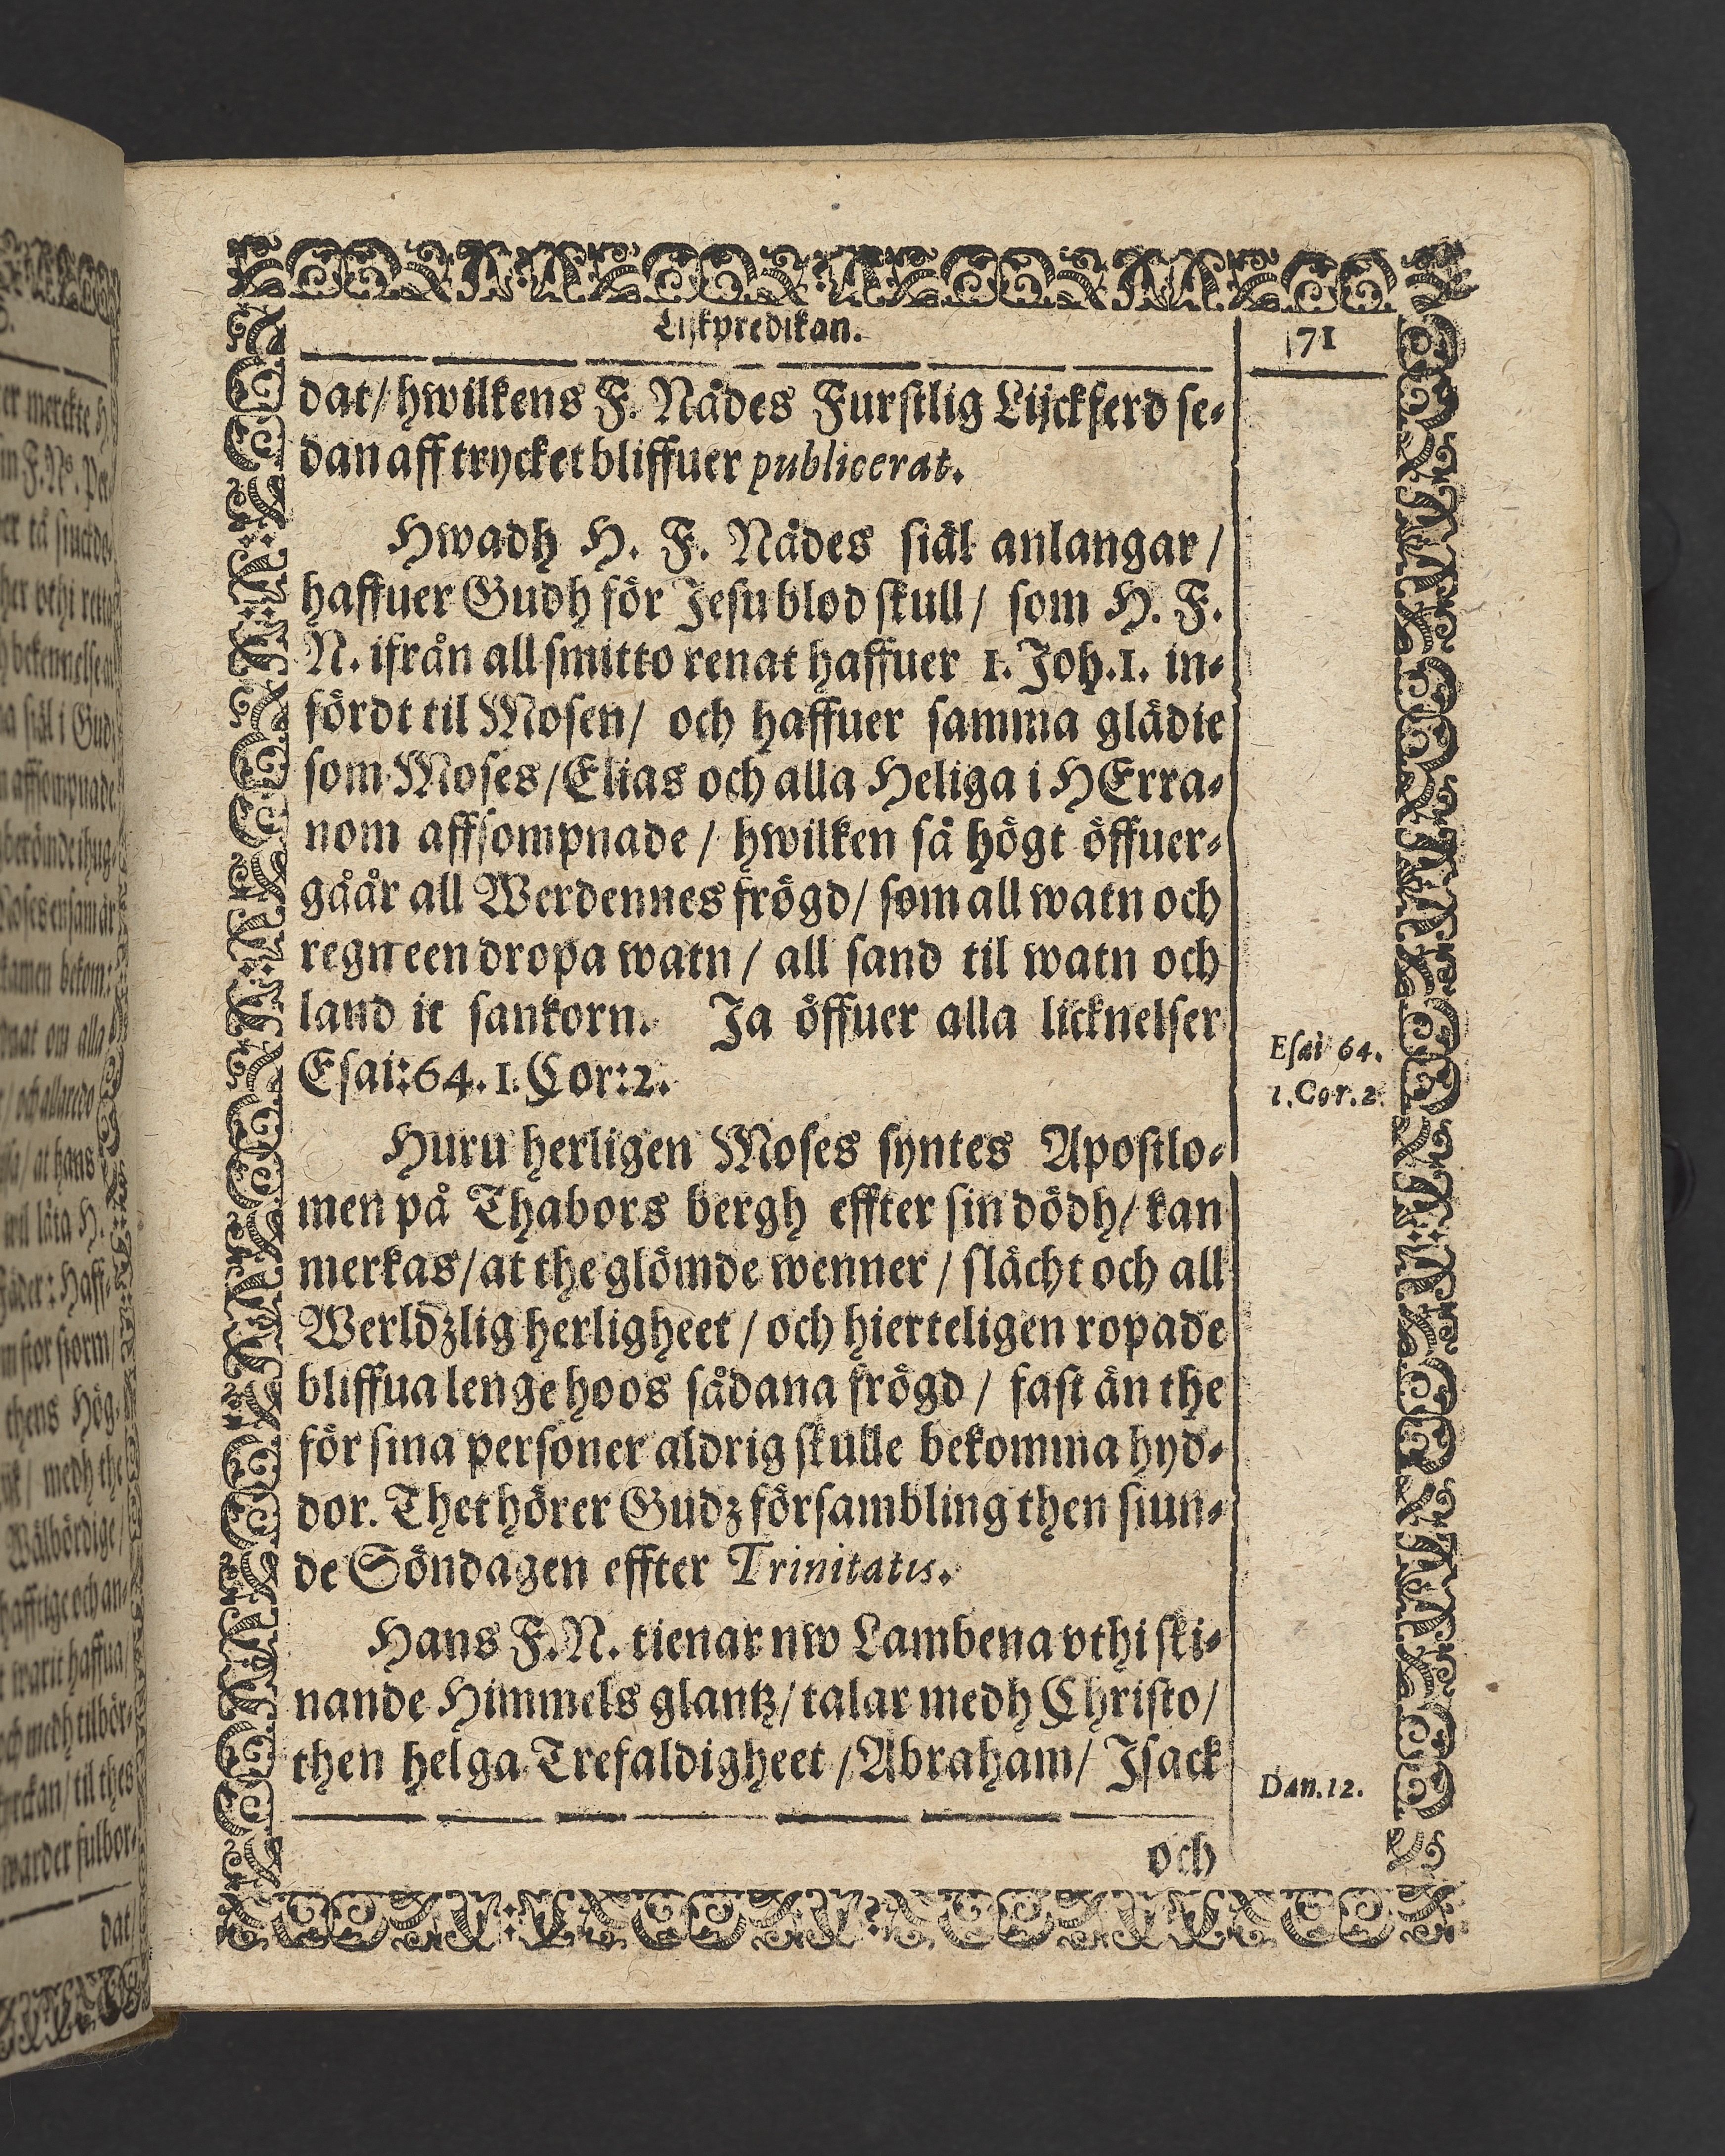 Lijkpredikan.
71
dat/ hwilkens F. Nådes Furstlig Lijckferd se-
dan aff trycket bliffuer publicerat.
Hwadh H. F. Nådes siäl anlangar/
haffuer Gudh för Jesu blod skull/ som H. F.
N. ifrån all smitto renat haffuer 1. Joh. 1. in-
fördt til Mosen/ och haffuer samma glädie
som Moses/ Elias och alla Heliga i HErra-
nom affsompnade/ hwilken så högt öffuer-
gåår all Werdennes frögd/ som all watn och
regn een dropa watn/ all sand til watn och
land it sankorn. Ja öffuer alla licknelser
Esai:64. 1. Cor:2.
Esai 64.
1. Cor. 2.
Huru herligen Moses syntes Apostlo-
men på Thabors bergh effter sin dödh/ kan
merkas/ at the glömde wenner/ slächt och all
Werldzlig herligheet/ och hierteligen ropade
bliffua lenge hoos sådana frögd/ fast än the
för sina personer aldrig skulle bekomma hyd-
dor. Thet hörer Gudz försambling then siun-
de Söndagen effter Trinitatis.
Hans F. N. tienar nw Lambena vthi ski-
nande Himmels glantz/ talar medh Christo/
then helga Trefaldigheet/ Abraham/ Isack
Dan. 12.
och